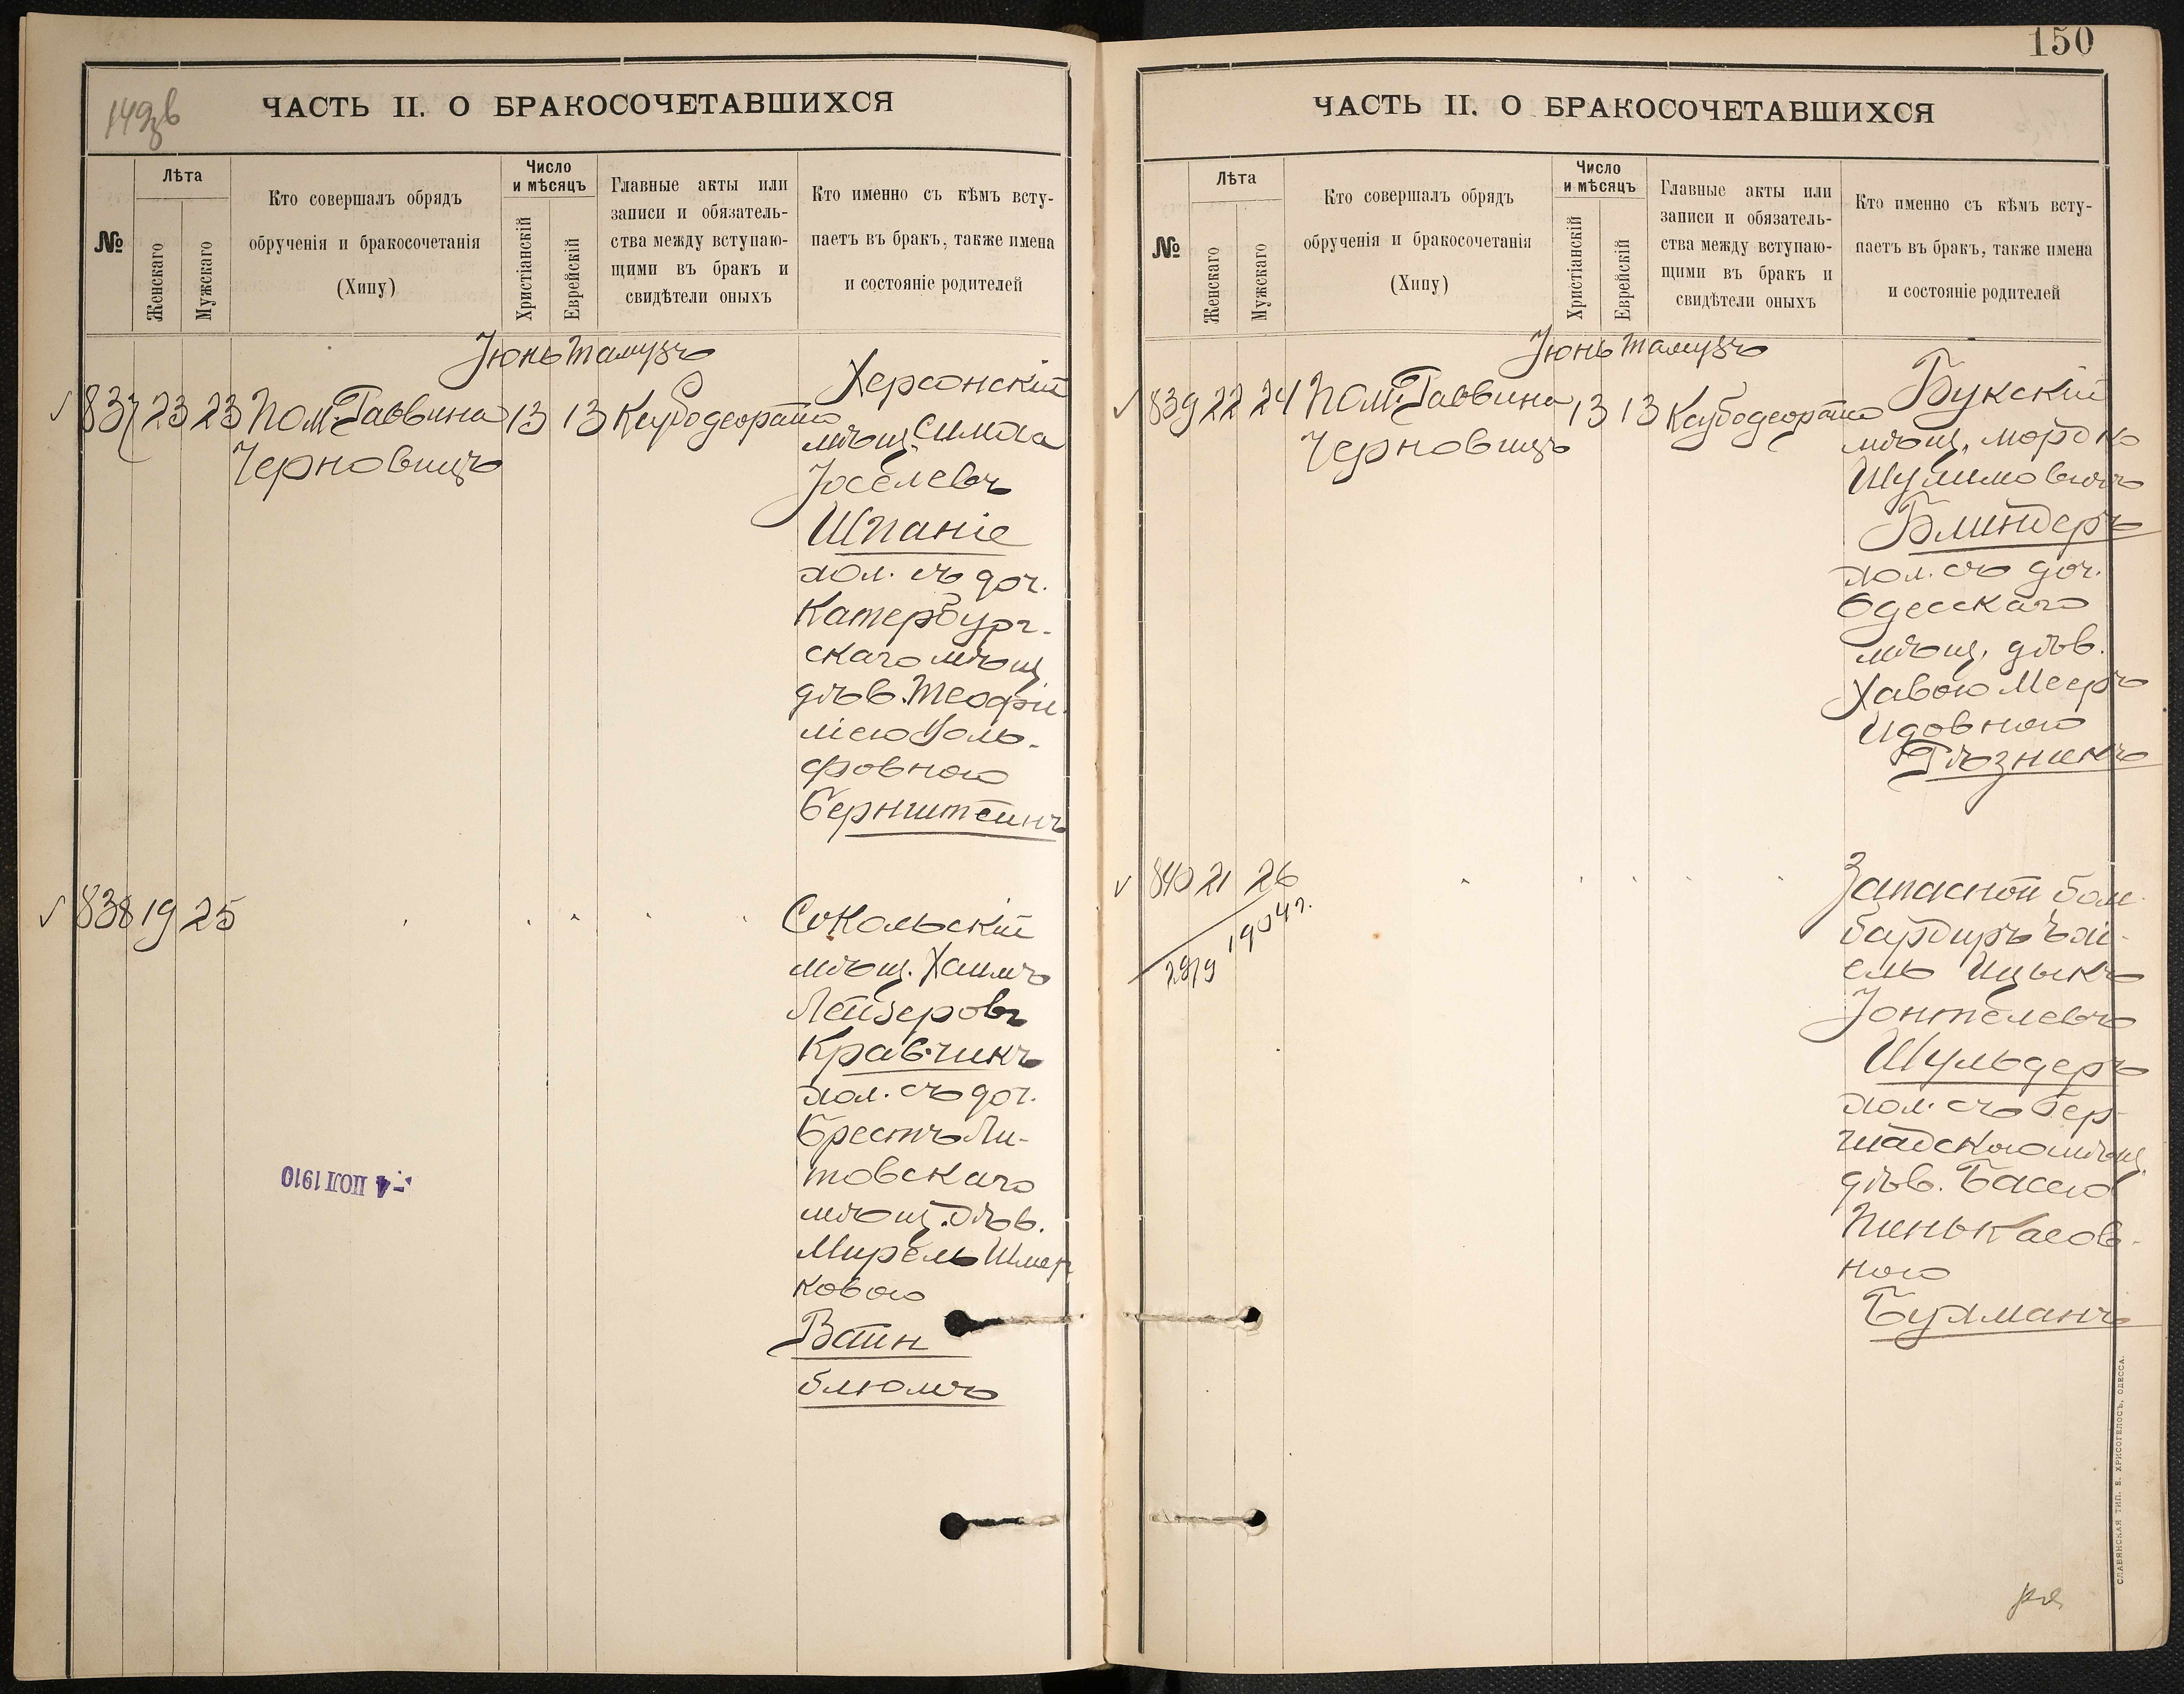 149об
ЧАСТЬ II. О БРАКОСОЧЕТАВШИХСЯ
№
Лѣта
Женскаго
Мужскаго
Кто совершалъ обрядъ
обрученія и бракосочетанія
(Хипу)
Число
и мѣсяцъ
Христіанскій
Еврейскій
Главные акты или
записи и обязатель-
ства между вступаю-
щими въ бракъ и
свидѣтели оныхъ
Кто именно съ кѣмъ всту-
паетъ въ бракъ, также имена
и состояніе родителей
Іюнь Тамузъ
837 23 23 Пом. Раввина 13 13
Черновицъ
Херсонскій
мѣщ. Симха
Іоселевъ
Шпаніе
хол. съ доч.
Катербург-
скаго мѣщ
дѣв. Теофи-
ліею Воль-
фовною
Бернштейнъ
838 19 25
Сокольскій
мѣщ. Хаимъ
Лейзеровъ
Кравчикъ
хол. съ доч.
Брестъ Ли-
товскаго
мѣщ. дѣв.
Мирель Шмер
ковою
Вайн
блюмъ
- 4 ІЮЛ 1910
150
ЧАСТЬ II. О БРАКОСОЧЕТАВШИХСЯ
№
Лѣта
Женскаго
Мужскаго
Кто совершалъ обрядъ
обрученія и бракосочетанія
(Хипу)
Число
и мѣсяцъ
Христіанскій
Еврейскій
Главные акты или
записи и обязатель-
ства между вступаю-
щими въ бракъ и
свидѣтели оныхъ
Кто именно съ кѣмъ всту-
паетъ въ бракъ, также имена
и состояніе родителей
Іюнь Тамузъ
839 22 24 Пом. Раввина 13 13
Черновицъ
Букскій
мѣщ. Мордко
Шулимовичъ
Блиндеръ
хол. съ доч.
Одесскаго
мѣщ. дѣв.
Хавою Мееръ
Идовною
Рѣзникъ
840 21 26
1904 г.
2879
Запасной бом-
бардиръ Ѣхи-
ель Ицыкъ
Іонтелевъ
Шульдеръ
хол. съ Бер-
шадскою мѣщ.
дѣв. Басею
Пинькасов-
ною
Бухманъ
СЛАВЯНСКАЯ ТИП. Е. ХРИСОГЕЛОСЪ, ОДЕССА.